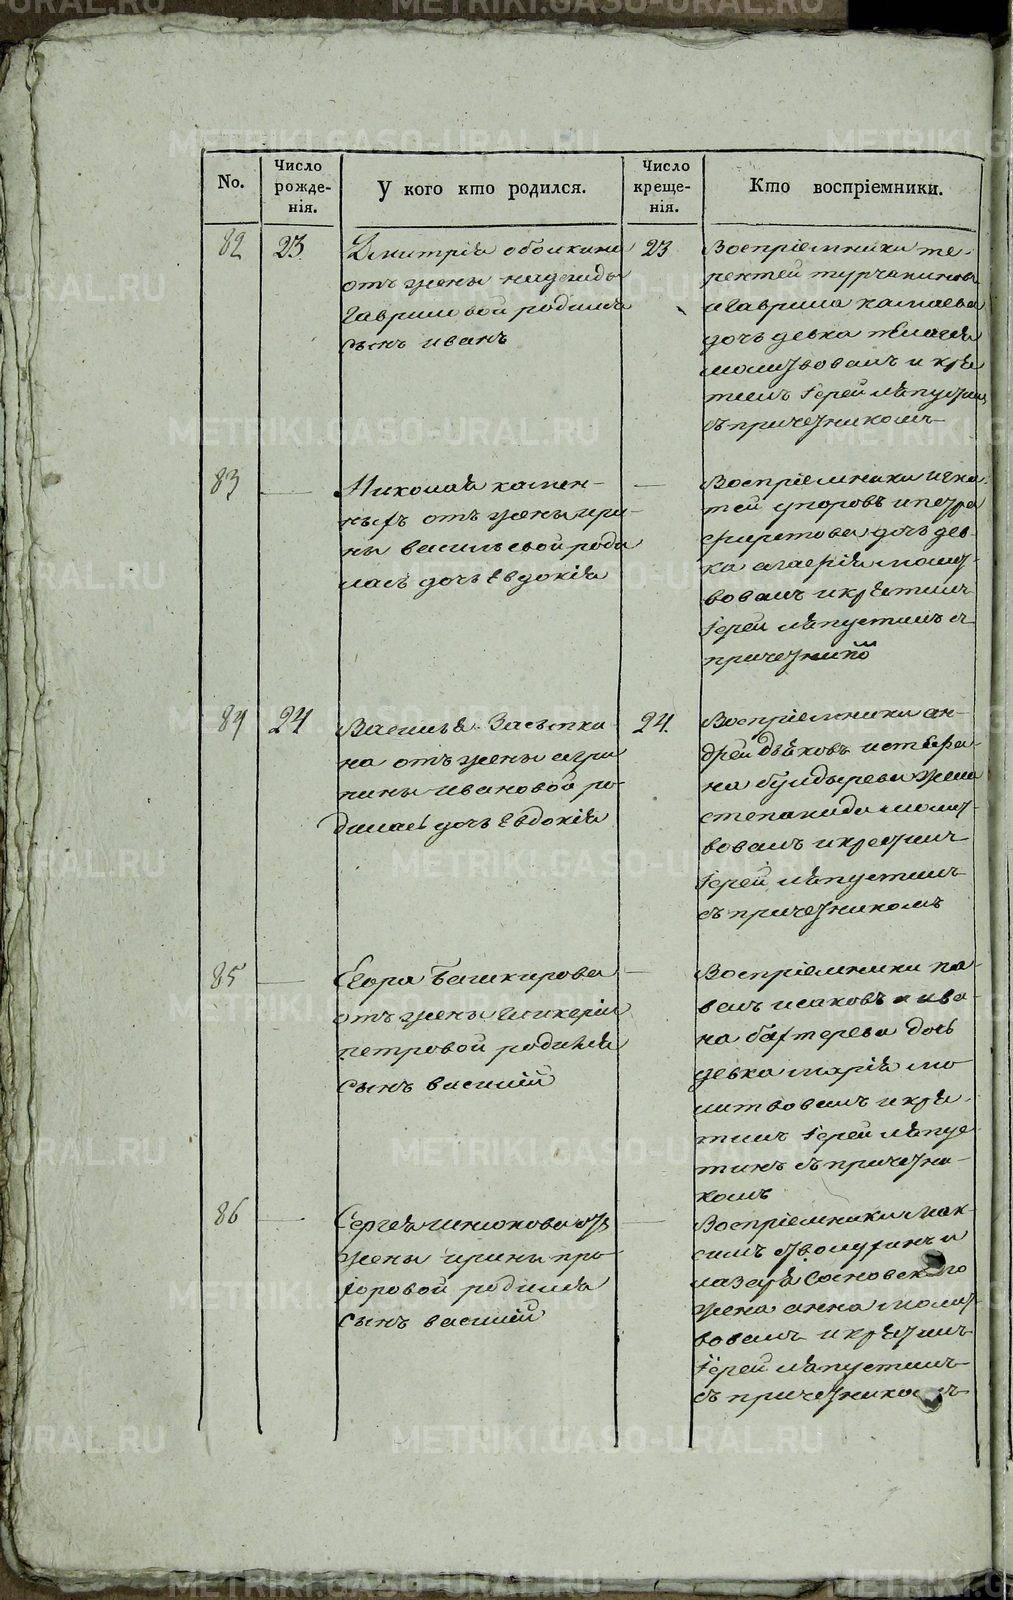 No.
Число
рожде-
нія.
У кого кто родился.
Число
креще-
нія.
Кто воспріемники.
82
23
Дмитрія обоикина
отъ жены надежды
Гавриловой родился
сынъ иванъ
23
Воспріемники те-
рентей турчаниновъ
иГаврила камаева
дочь девка пелагея
молитвовалъ и кре
тилъ Іерей
съ причетникомъ
83
Николая камен-
ныхъ отъ жены ири-
ны васильевой роди
лась дочь Евдокія
Воспріемники игна
тей упоровъ ипетра
дочь дев-
ка агафія молит-
вовалъ икрестилъ
Іерей с
84
24
Василья Засыпки
на отъ жены агри
пины ивановой ро-
дилась дочь Евдокія
24.
Воспріемники ан-
дрей дьяковъ истефа-
на булдырева жена
степанида молит
вовалъ икрестилъ
Іерей
съ причетникомъ
85
Егора Башкирова
отъ жены Гликеріи
петровой родился
сынъ василій
Воспріемники па-
велъ исаковъ и ива-
на бахтерева дочь
девка марія мо
литвовалъ икре
тилъ Іерей
съ причетни-
комъ
86
Сергея отъ
жены ирины про
хоровой родился
сынъ василій
Воспріемники мак
симъ и
лазаря Сосновскаго
жена анна молит
вовалъ икрестилъ
Іерей
съ причетникомъ
METRIKI.GASO-URAL.RU